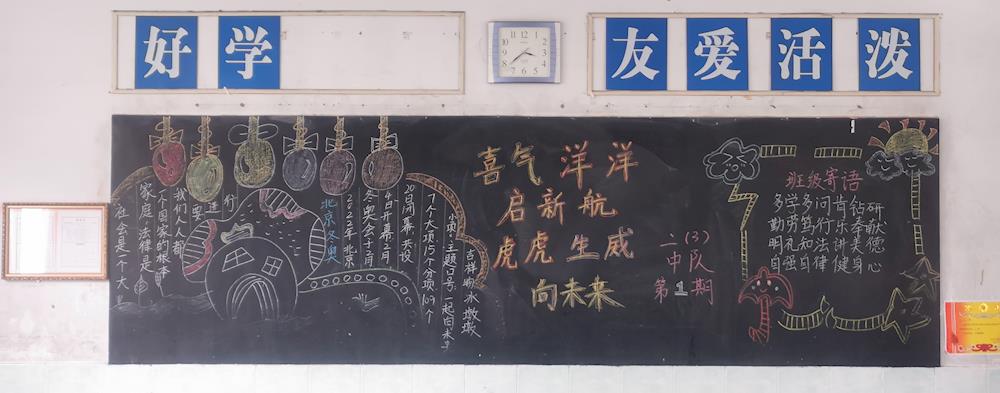 好学
友爱活泼
喜气洋洋
启新航
虎虎生威
向未来
二(3)
中队
第1期
班级寄语
多学多问肯钻研
勤劳笃行乐奉献
明礼知法讲美德
自强自律健身心
北京冬奥
2022年北京
冬奥会于二月
4日开幕,2月
20日闭幕,共设
7个大项,15个分项,109个
小项。主题口号:一起向未来
吉祥物冰墩墩
我们人人都
要进行
个国家的根本
家庭法律是
社会是一个大
12
1
2
3
4
5
6
7
8
9
10
11